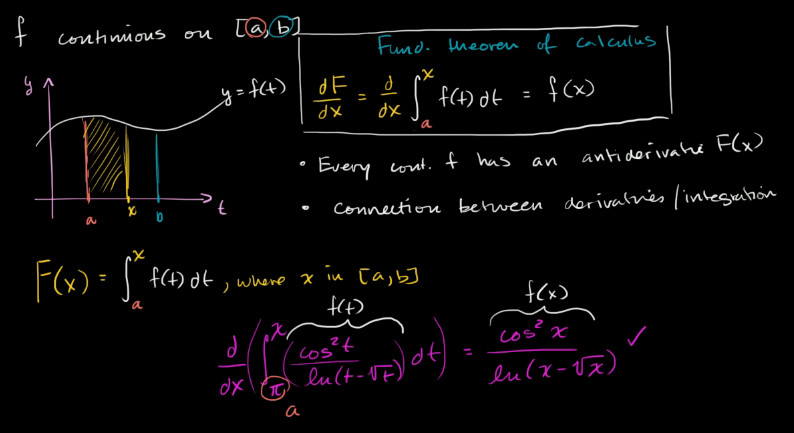 f continuous on [a, b]
Fund. theorem of calculus
dF/dx = d/dx ∫_a^x f(t) dt = f(x)
y
y = f(t)
a x b t
• Every cont. f has an antiderivative F(x)
• Connection between derivatives/integration
F(x) = ∫_a^x f(t) dt, where x in [a,b]
f(t) f(x)
d/dx (∫_π^x (cos²t / ln(t-√t)) dt) = cos²x / ln(x-√x) ✓
a